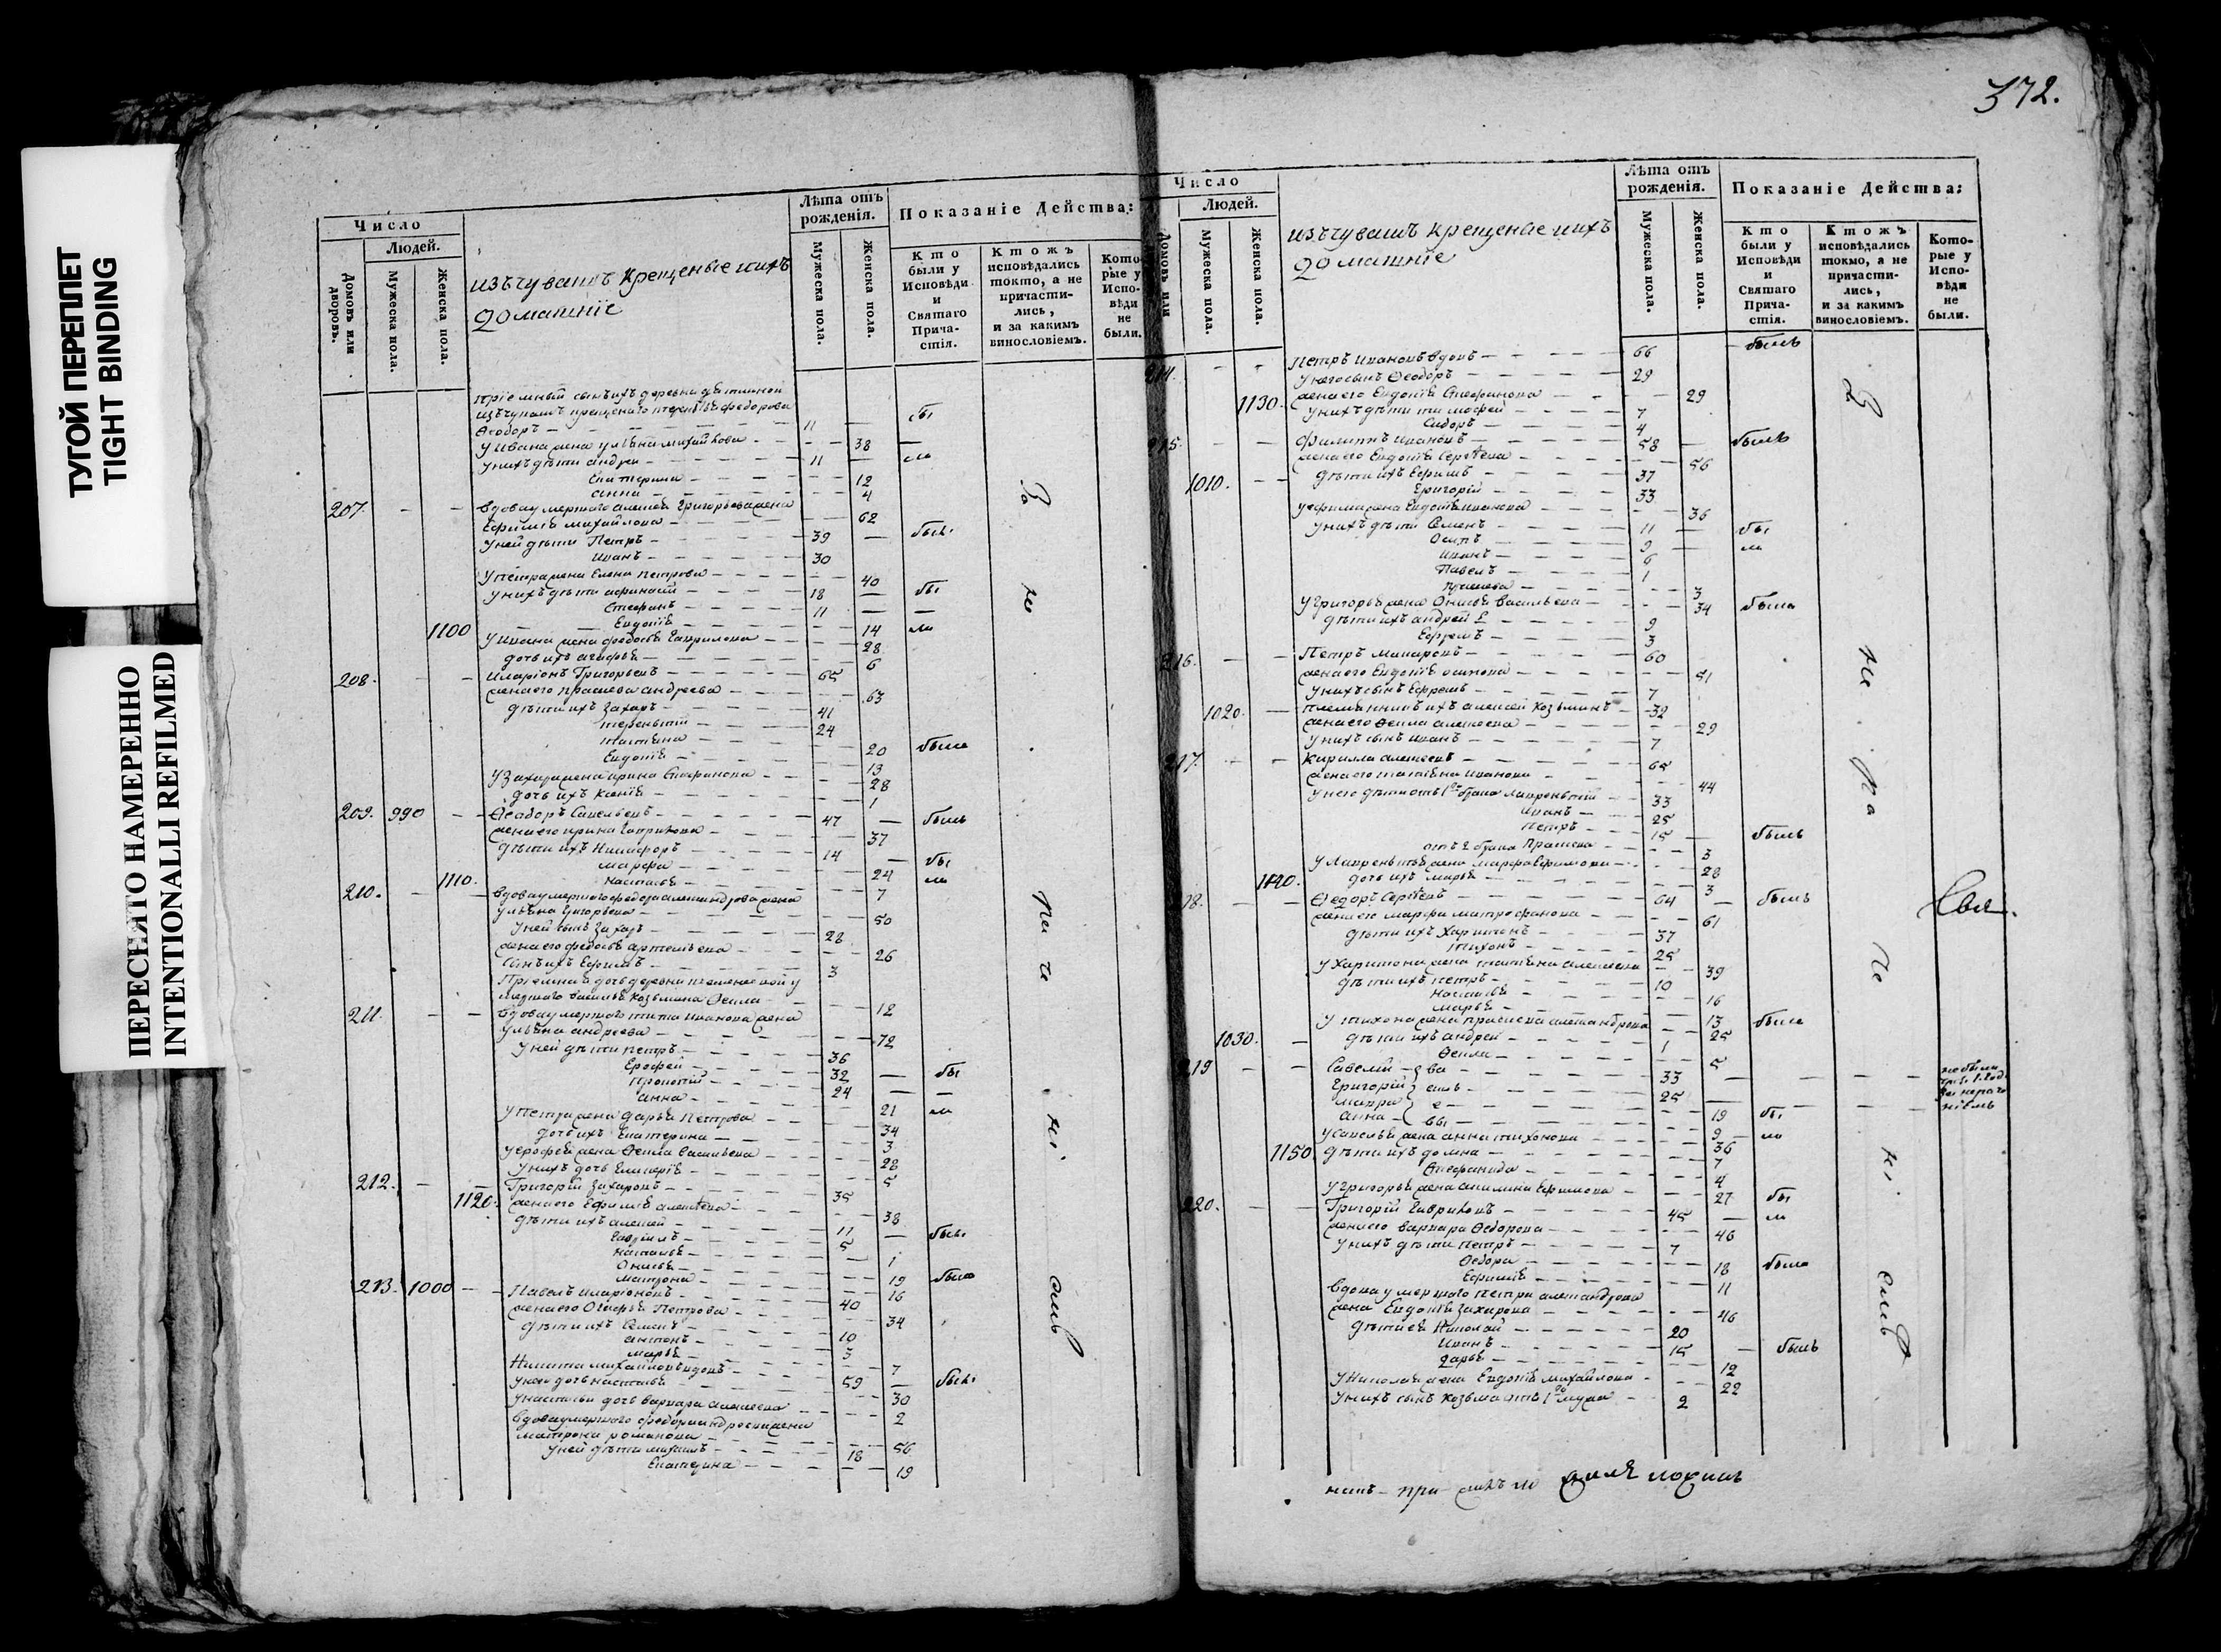 372.
ТУГОЙ ПЕРЕПЛЕТ
TIGHT BINDING
ПЕРЕСНЯТО НАМЕРЕННО
INTENTIONALLI REFILMED
Число
Людей.
Домовъ или дворовъ.
Мужеска пола.
Женска пола.
изъ чувашъ крещеные ихъ
домашніе
Лѣта отъ рожденія.
Мужеска пола.
Женска пола.
Показаніе Действа:
Кто были у Исповѣди и Святаго Причастія.
Ктожъ исповѣдались токмо, а не причастились, и за какимъ винословіемъ.
Которые у Исповѣди не были.
пріемный сынъ ихъ деревни
Ѳеодоръ 11
У Ивана жена ульяна михайлова 38
у нихъ дѣти андрей 11
Екатерина 12
анна 4
207. Вдова умершаго алексея Григорьева жена
Ефимія михайлова 62
У ней дѣти Петръ 39 были
Иванъ 30
У петра жена Елена петрова 40
у нихъ дѣти афонасій 18 бы
Стефанъ 11
Евдокія 14 ли
1100 У ивана жена федосья Гаврилова 28
дочь ихъ агафья 6
208. Иларіонъ Григорьевъ 65
жена его прасковья андреева 63
дѣти ихъ Захаръ 41
терентій 24
татьяна 20 были
Евдокія 13
У Захара жена ирина Стефанова 28
дочь ихъ Ксенія 1
209. 990 Ѳеодоръ Савельевъ 47 были
жена его ирина Гаврилова 37
дѣти ихъ Никифоръ 14
марфа 24 бы
1110. настасья 7 ли
210. Вдова умершаго федора александрова жена
Ульяна Григорьева 50
У ней сынъ Захаръ 28
жена его федосья артемьева 26
сынъ ихъ Ефимъ 3
Пріемная дочь деревни
умершаго василья козьмина Ѳекла 12
211. вдова умершаго тита иванова жена
Ульяна андреева 72
У ней дѣти петръ 36
Ерофей 32 бы
прокопій 24
анна 21 ли
У петра жена дарья Петрова 34
дочь ихъ Екатерина 3
У ерофея жена Ѳекла Васильева 28
У нихъ дочь 5
212. Григорій Захаровъ 35
1120. жена его Ефимія алексеева 38
дѣти ихъ алексей 11 были
Гавріилъ 5
настасья 1
Онисья 19 были
матрона 16
213. 1000 Павелъ иларіоновъ 40
жена его Огафья Петрова 34
дѣти ихъ Семенъ 10
антонъ 3
марья 7
Никита михайловъ вдовъ 59 были
У него дочь настасья 30
У настасьи дочь варвара алексеева 2
Вдова умершаго федора андреева жена
матрона романова 56
У ней дѣти михаилъ 18
Екатерина 19
Число
Людей.
Домовъ или
Мужеска пола.
Женска пола.
изъ чувашъ крещеные ихъ
домашніе
Лѣта отъ рожденія.
Мужеска пола.
Женска пола.
Показаніе Действа:
Кто были у Исповѣди и Святаго Причастія.
Ктожъ исповѣдались токмо, а не причастились, и за какимъ винословіемъ.
Которые у Исповѣди не были.
214. Петръ Ивановъ вдовъ 66 были
У него сынъ Ѳеодоръ 29
1130. жена его Евдокія Стефанова 29
У нихъ дѣти тимофей 7
Сидоръ 4
215. Филиппъ Ивановъ 58 были
жена его Евдокія Сергеева 56
1010. дѣти ихъ Ефимъ 37
Григорій 33
У ефима жена Евдокія иванова 36
У нихъ дѣти Семенъ 11 бы
Осипъ 9 ли
иванъ 6
Павелъ 1
прасковья 3
У Григорья жена Онисья Васильева 34 были
дѣти ихъ андрей 9
Ефремъ 3
216. Петръ макаровъ 60
жена его Евдокія осипова 51
У нихъ сынъ Ефремъ 7
1020. племянникъ ихъ алексей Козьминъ 32
жена его Ѳекла алексеева 29
У нихъ сынъ иванъ 7
217. Кирилла алексеевъ 65
жена его татьяна иванова 44
У него дѣти отъ 1го брака Лаврентій 33
иванъ 25
петръ 15 были
отъ 2 брака Прасковья 3
У Лаврентья жена марфа Ефимова 28
1140. дочь ихъ марья 3
218. Ѳедоръ Сергеевъ 64 были
жена его марфа митрофанова 61
дѣти ихъ Харитонъ 37
тихонъ 25
У Харитона жена татьяна алексеева 39
дѣти ихъ петръ 10
настасья 16
марья 13
У тихона жена прасковья александрова 25 были
1030. дѣти ихъ андрей 1
Ѳекла 5
219 Савелій 33 не были
Григорій 25
мавра 19 бы
анна 9 ли
У Савелья жена анна тихонова 36
1150 дѣти ихъ домна 7
Стефанида 4
У Григорья жена акилина Ефимова 27 бы
220. Григорій Гавриловъ 45 ли
жена его варвара Ѳедорова 46
У нихъ дѣти петръ 7
Ѳедора 18 были
Ефимія 11
Вдова умершаго петра александрова
жена Евдокія Захарова 46
дѣти ея Николай 20
Иванъ 15 были
дарья 12
У Николая жена Евдокія михайлова 22
У нихъ сынъ Козьма отъ 1го мужа 2